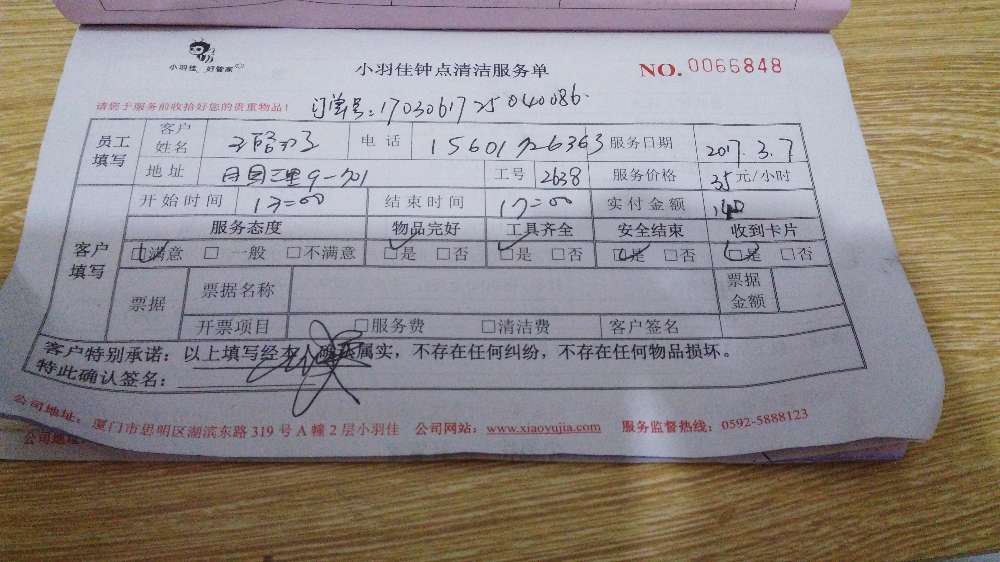 小羽佳 好管家
小羽佳钟点清洁服务单 NO. 0066848
请您于服务前收拾好您的贵重物品! 订单号:1703061725040086.
员工填写 客户姓名 电话 服务日期 2017.3.7
地址 工号 2638 服务价格 35元/小时
客户填写 开始时间 13=00 结束时间 17=00 实付金额 140
服务态度 物品完好 工具齐全 安全结束 收到卡片
☑满意 □一般 □不满意 ☑是 □否 ☑是 □否 ☑是 □否 ☑是 □否
票据 票据名称 票据金额
开票项目 □服务费 □清洁费 客户签名
客户特别承诺:以上填写经本人 属实,不存在任何纠纷,不存在任何物品损坏。
特此确认签名:
公司地址:厦门市思明区湖滨东路319号A幢2层小羽佳 公司网站:www.xiaoyujia.com 服务监督热线:0592-5888123
公司地址